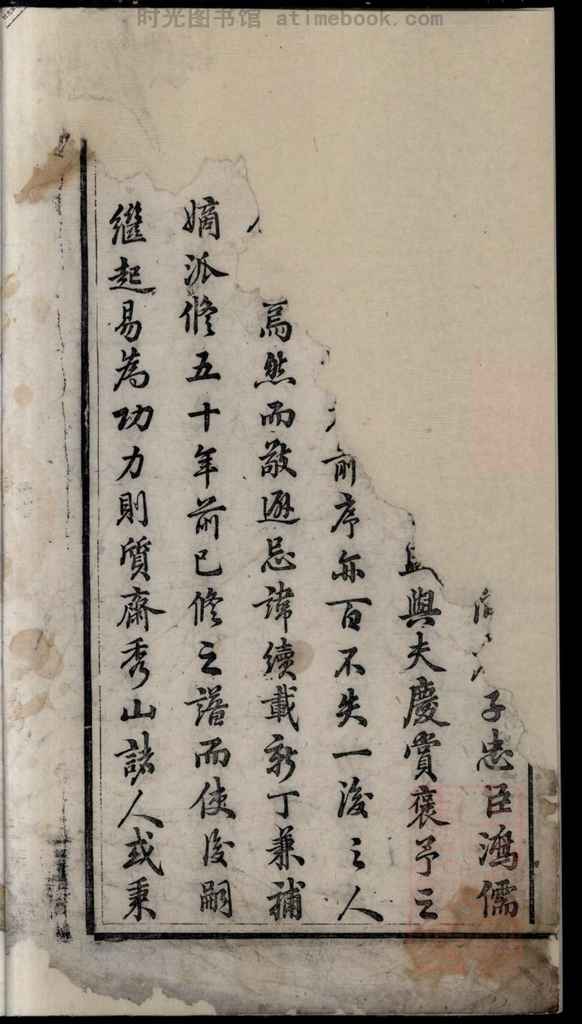 时光图书馆 atimebook.com
子忠臣鴻儒
與夫慶賞褒予之
前序亦百不失一後之人
焉然而敬避忌諱續載新丁兼補
嫡派修五十年前已修之譜而使後嗣
繼起易為功力則質齋秀山諸人或秉